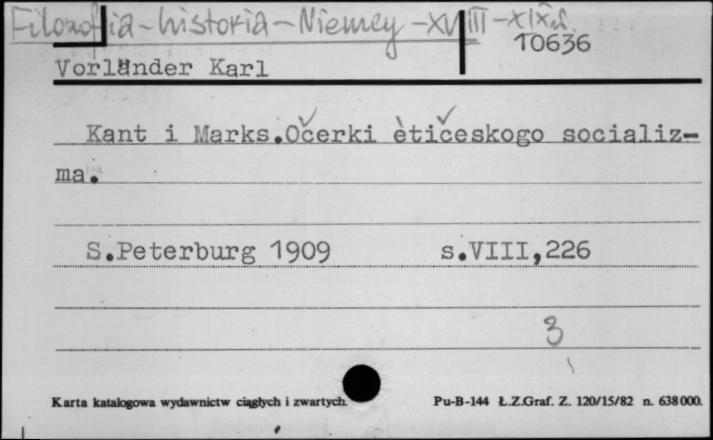 Filozofia-historia-Niemcy-XVIII-XIX w.
10636
Vorländer Karl
Kant i Marks.Očerki ètičeskogo socializ-
ma.
S.Peterburg 1909 s.VIII,226
3
Karta katalogowa wydawnictw ciągłych i zwartych. Pu-B-144 Ł.Z.Graf. Z. 120/15/82 n. 638000.